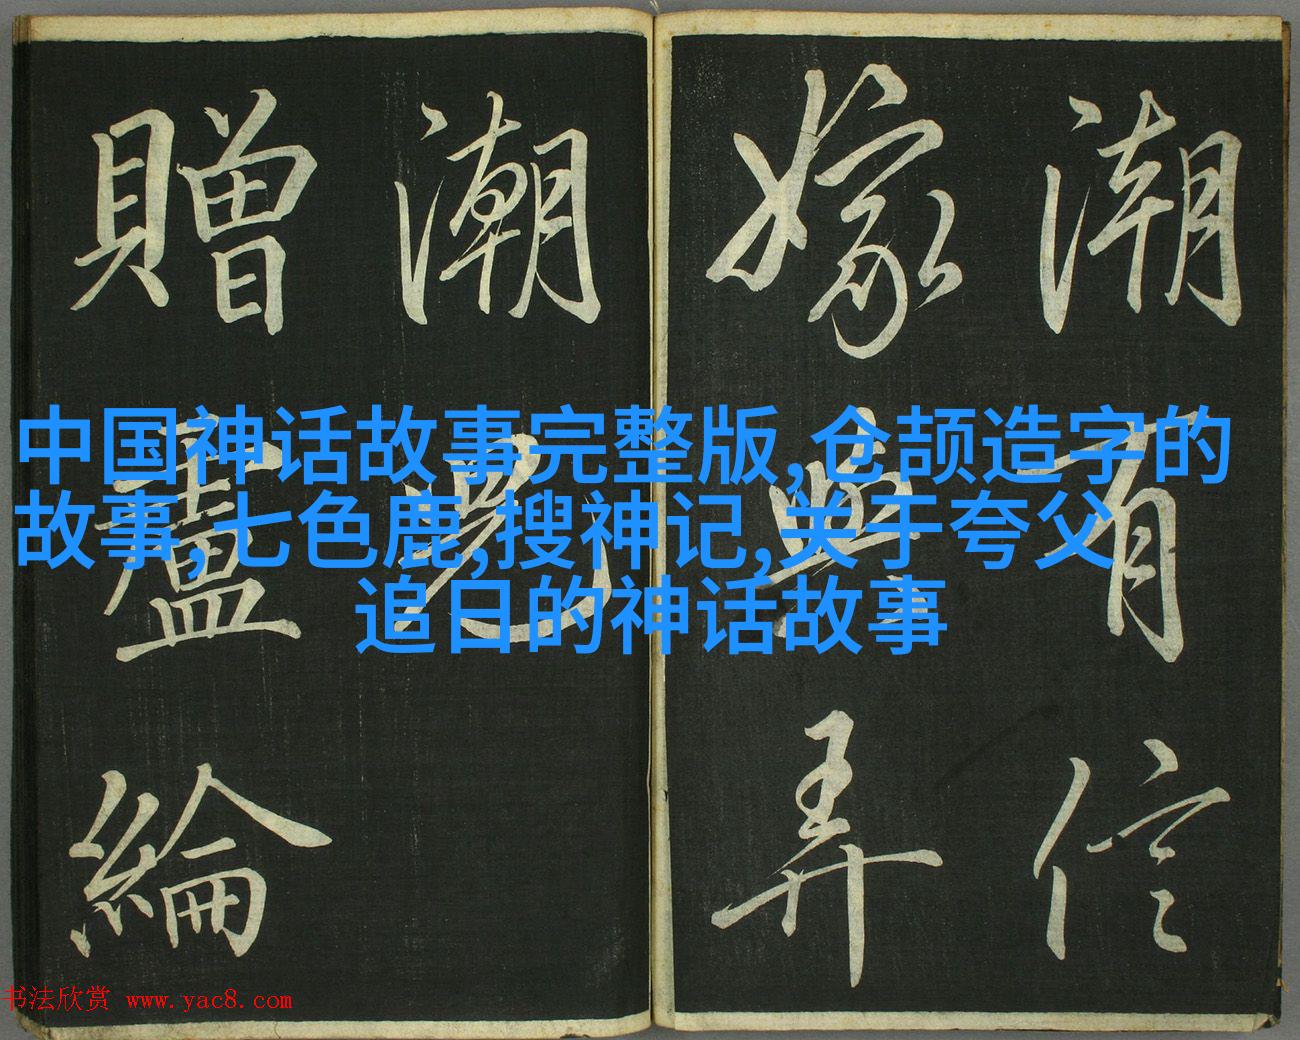 潮有信
嫁與弄
潮兒
贈盧綸
中国神话故事完整版,仓颉造字的
故事,七色鹿,搜神记,关于夸父
追日的神话故事
书法欣赏 www.yac8.com